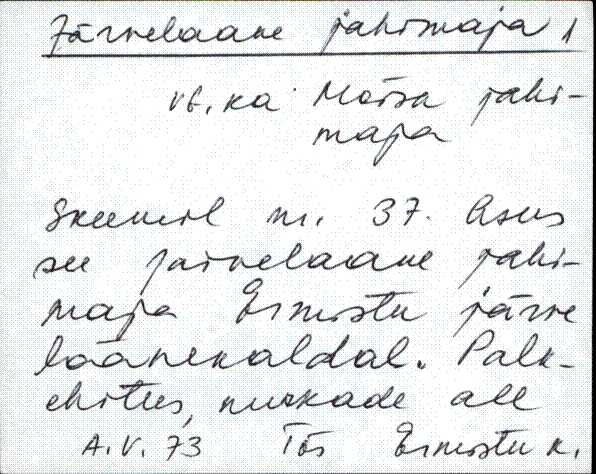 Järvelaane jahimaja 1
vt. ka Mõisa jahi-
maja
Skeemil nr. 37. Asus
see järvelaane jahi-
maja Ermistu järve
läänekaldal. Palk-
ehitus, nurkade all
A.V. 73 Tõs Ermistu k.